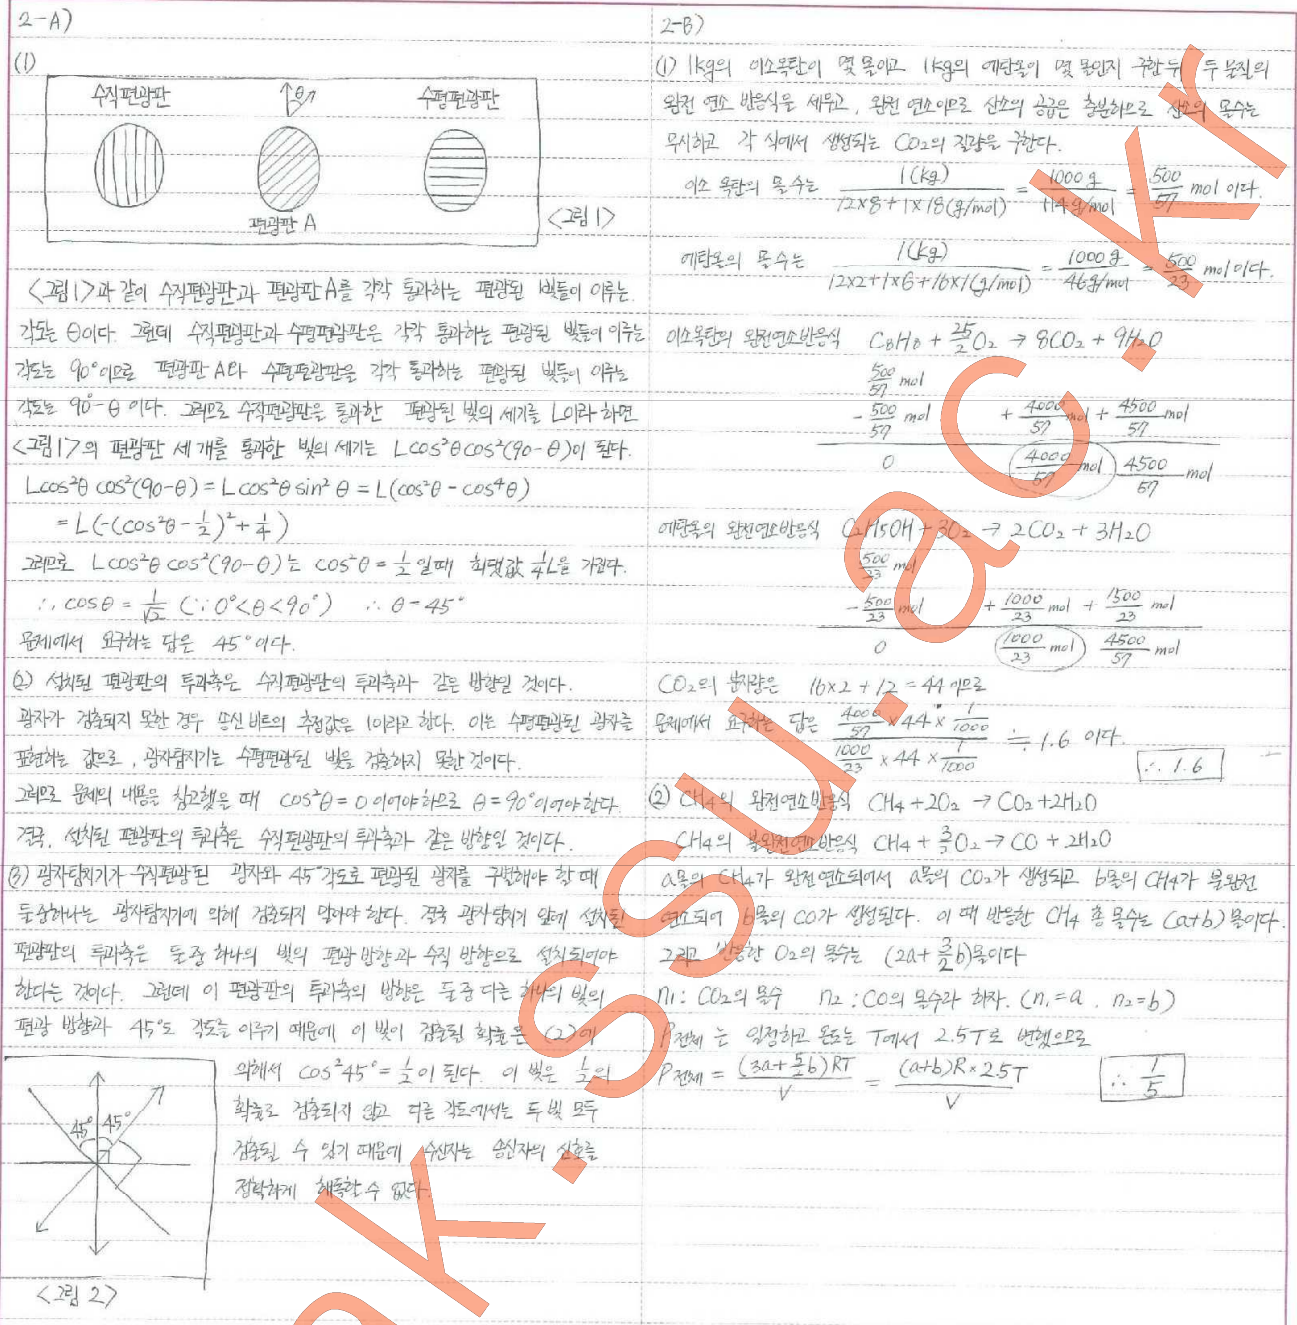 2-A)
(1)
수직편광판 θ 수평편광판
편광판 A
<그림 1>
<그림 1>과 같이 수직편광판과 편광판 A를 각각 통과하는 편광된 빛들이 이루는
각도는 θ이다. 그런데 수직편광판과 수평편광판은 각각 통과하는 편광된 빛들이 이루는
각도는 90°이므로 편광판 A와 수평편광판을 각각 통과하는 편광된 빛들이 이루는
각도는 90°-θ 이다. 그러므로 수직편광판을 통과한 편광된 빛의 세기를 L이라 하면
<그림 1>의 편광판 세 개를 통과한 빛의 세기는 Lcos²θcos²(90-θ)이 된다.
Lcos²θ cos²(90-θ) = Lcos²θ sin²θ = L(cos²θ - cos⁴θ)
= L(-(cos²θ - 1/2)² + 1/4)
그러므로 Lcos²θ cos²(90-θ)는 cos²θ = 1/2 일때 최댓값 1/4L을 가진다.
∴ cosθ = 1/√2 (∵ 0°<θ<90°) ∴ θ = 45°
문제에서 요구하는 답은 45°이다.
(2) 설치된 편광판의 투과축은 수직편광판의 투과축과 같은 방향일 것이다.
광자가 검출되지 못한 경우 송신비트의 추정값은 1이라고 한다. 이는 수평편광된 광자를
표현하는 값으로, 광자탐지기는 수평편광된 빛을 검출하지 못한 것이다.
그러므로 문제의 내용을 참고했을 때 cos²θ = 0 이어야 하므로 θ = 90°이어야 한다.
결국, 설치된 편광판의 투과축은 수직편광판의 투과축과 같은 방향일 것이다.
(3) 광자탐지기가 수직편광된 광자와 45°각도로 편광된 광자를 구별해야 할 때
둘중하나는 광자탐지기에 의해 검출되지 말아야 한다. 결국 광자탐지기 앞에 설치된
편광판의 투과축은 둘 중 하나의 빛의 편광 방향과 수직 방향으로 설치되어야
한다는 것이다. 그런데 이 편광판의 투과축의 방향은 둘 중 다른 하나의 빛의
편광 방향과 45°도 각도를 이루기 때문에 이 빛이 검출될 확률은 (2)에
의해서 cos²45° = 1/2 이 된다. 이 빛은 1/2의
확률로 검출되지 않고 다른 각도에서는 두 빛 모두
검출될 수 있기 때문에 수신자는 송신자의 신호를
정확하게 해독할 수 없다.
45° 45°
<그림 2>
2-B)
(1) 1kg의 이소옥탄이 몇 몰이고 1kg의 에탄올이 몇 몰인지 구한 뒤 두 물질의
완전 연소 반응식을 세우고, 완전 연소이므로 산소의 공급은 충분하므로 산소의 몰수는
무시하고 각 식에서 생성되는 CO₂의 질량을 구한다.
이소 옥탄의 몰수는 1(kg)/12×8+1×18(g/mol) = 1000g/114g/mol = 500/57 mol 이다.
에탄올의 몰수는 1(kg)/12×2+1×6+16×1(g/mol) = 1000g/46g/mol = 500/23 mol이다.
이소옥탄의 완전연소반응식 C₈H₈ + 25/2 O₂ → 8CO₂ + 9H₂O
500/57 mol
- 500/57 mol + 4000/57 mol + 4500/57 mol
0 4000/57 mol 4500/57 mol
에탄올의 완전연소반응식 C₂H₅OH + 3O₂ → 2CO₂ + 3H₂O
500/23 mol
- 500/23 mol + 1000/23 mol + 1500/23 mol
0 1000/23 mol 4500/57 mol
CO₂의 분자량은 16×2+12 = 44 이므로
문제에서 요구하는 답은 4000/57 × 44 × 1/1000 / 1000/23 × 44 × 1/1000 ≒ 1.6 이다.
∴ 1.6
(2) CH₄의 완전연소반응식 CH₄ + 2O₂ → CO₂ + 2H₂O
CH₄의 불완전연소반응식 CH₄ + 3/2 O₂ → CO + 2H₂O
a몰의 CH₄가 완전연소되어서 a몰의 CO₂가 생성되고 b몰의 CH₄가 불완전
연소되어 b몰의 CO가 생성된다. 이 때 반응한 CH₄ 총 몰수는 (a+b)몰이다.
그리고 반응한 O₂의 몰수는 (2a + 3/2 b)몰이다
n₁ : CO₂의 몰수 n₂ : CO의 몰수라 하자. (n₁=a, n₂=b)
P전체 는 일정하고 온도는 T에서 2.5T로 변했으므로
P전체 = (3a + 5/2 b)RT/V = (a+b)R×2.5T/V
∴ 1/5
pk.ssu.ac.kr